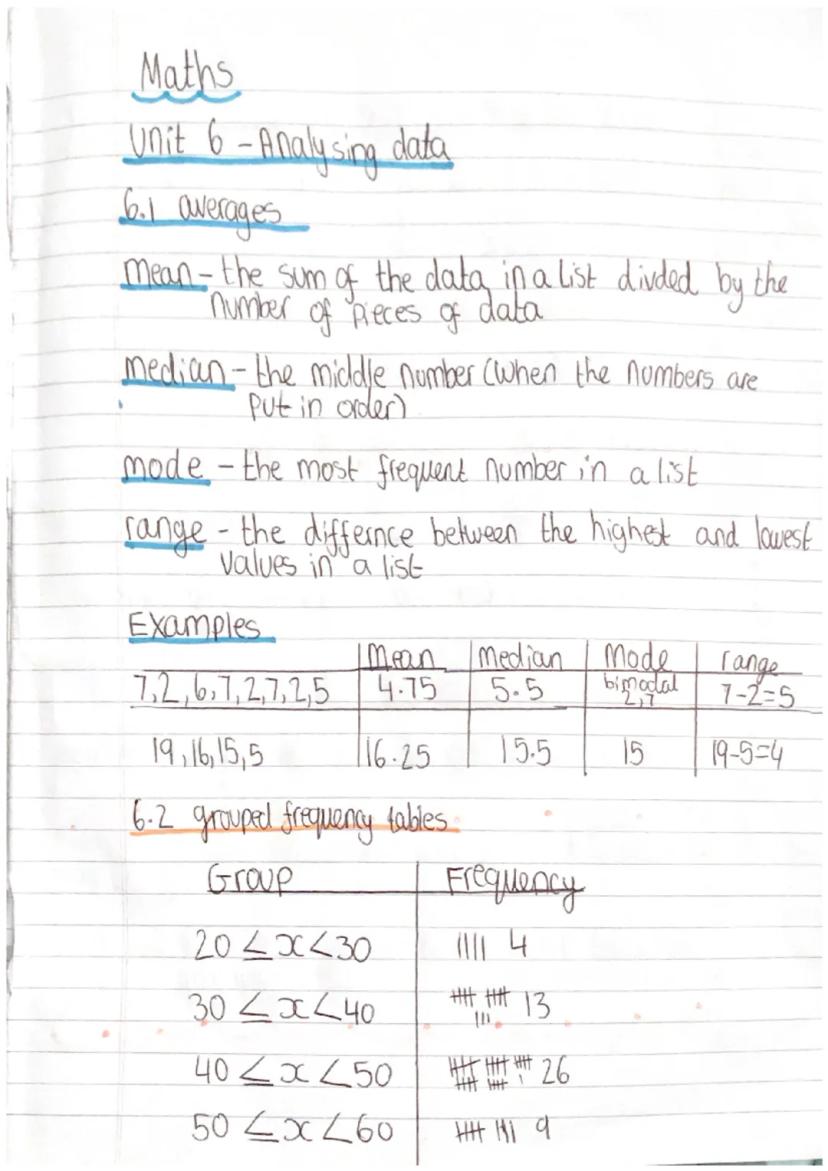 Maths
Unit 6 - Analysing data
6.1 averages
mean - the sum of the data in a list divded by the
number of pieces of data
median - the middle number (when the numbers are
put in order)
mode - the most frequent number in a list
range - the differnce between the highest and lowest
values in a list
Examples
Mean Median Mode range
7,2,6,7,2,7,2,5 4.75 5.5 bimodal 2,7 7-2=5
19,16,15,5 16.25 15.5 15 19-5=4
6.2 grouped frequency tables
Group Frequency
20 ≤ x < 30 |||| 4
30 ≤ x < 40 13
40 ≤ x < 50 26
50 ≤ x < 60 9